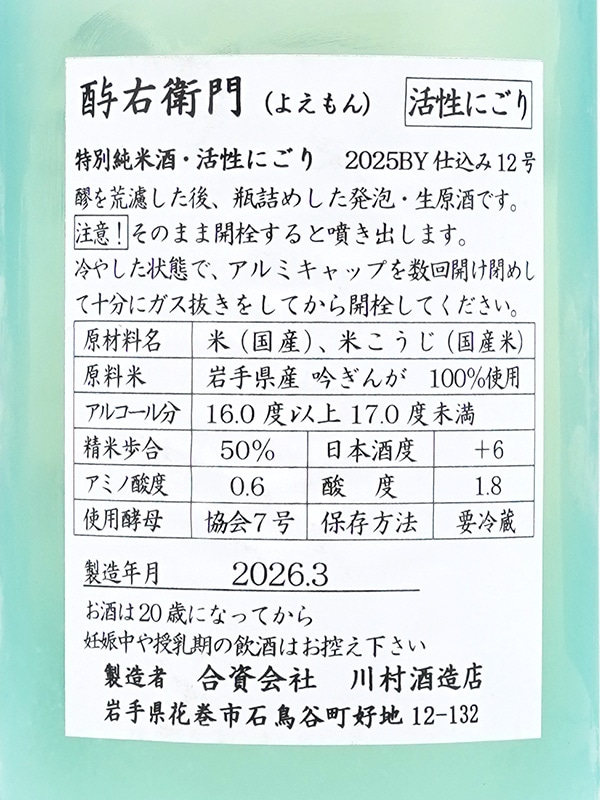 酉与右衛門（よえもん） 活性にごり
特別純米酒・活性にごり 2025BY仕込み12号
醪を荒濾した後、瓶詰めした発泡・生原酒です。
注意！そのまま開栓すると噴き出します。
冷やした状態で、アルミキャップを数回開け閉めし
て十分にガス抜きをしてから開栓してください。
原材料名 米（国産）、米こうじ（国産米）
原料米 岩手県産 吟ぎんが 100%使用
アルコール分 16.0度以上17.0度未満
精米歩合 50% 日本酒度 +6
アミノ酸度 0.6 酸 度 1.8
使用酵母 協会7号 保存方法 要冷蔵
製造年月 2026.3
お酒は20歳になってから
妊娠中や授乳期の飲酒はお控え下さい
製造者 合資会社 川村酒造店
岩手県花巻市石鳥谷町好地12-132